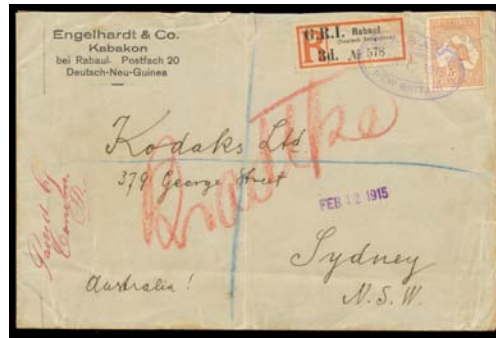 Engelhardt & Co.
Kabakon
bei Rabaul. Postfach 20
Deutsch-Neu-Guinea
R
G.R.I. Rabaul
(Deutsch Neuguinea)
3d. № 578
NEW BRITAIN
Kodaks Ltd
379 George Street
FEB 12 1915
Passed by
Sydney
Australia!
N.S.W.